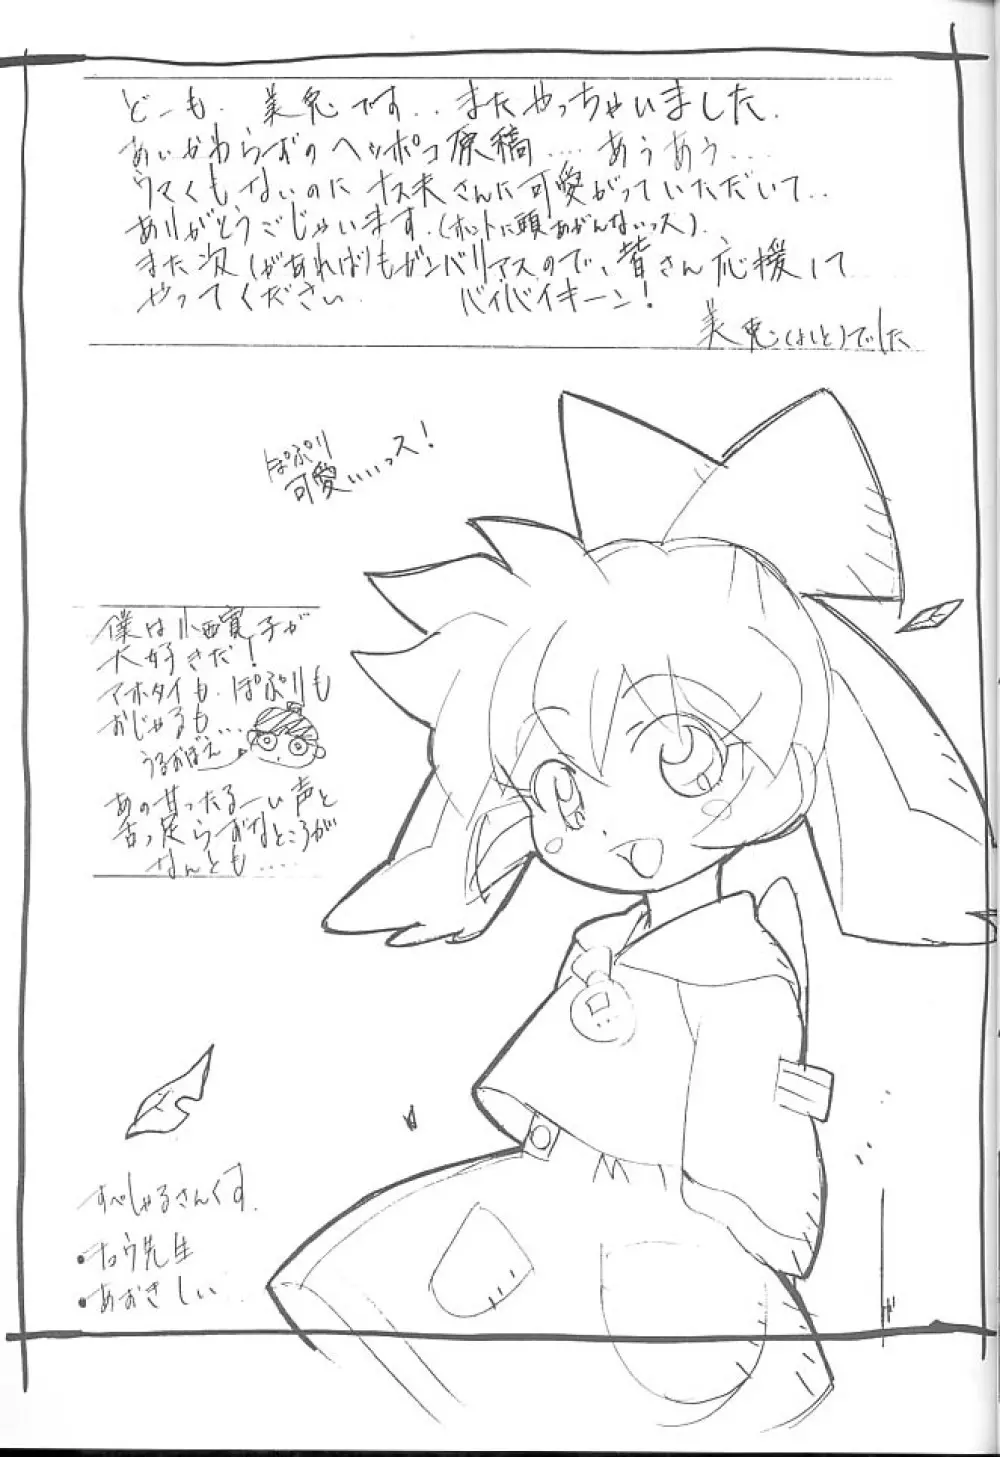 どーも、美兎です.. またやっちゃいました.
あいかわらずのヘッポコ原稿.... あうあう...
ウマくもないのに 夫さんに可愛がっていただいて..
ありがとうごじゃいます.(ホントに頭あがんないっス).
また次(があれば)もガンバリマスので、皆さん応援して
やってください. バイバイキーン!
美兎(よしと)でした
ぽぷり
可愛いいっス!
僕は小西寛子が
大好きだ!
アホタイも、ぽぷりも
おじゃるも....
うるおぼえ
あの甘ったるーい声と
舌っ足らずなところが
なんとも.....
すぺしゃるさんくす.
•ナカウ先生
•あおきしい